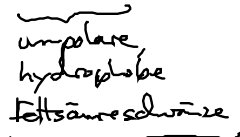 unpolare,
hydrophobe
Fettsäureschwänze